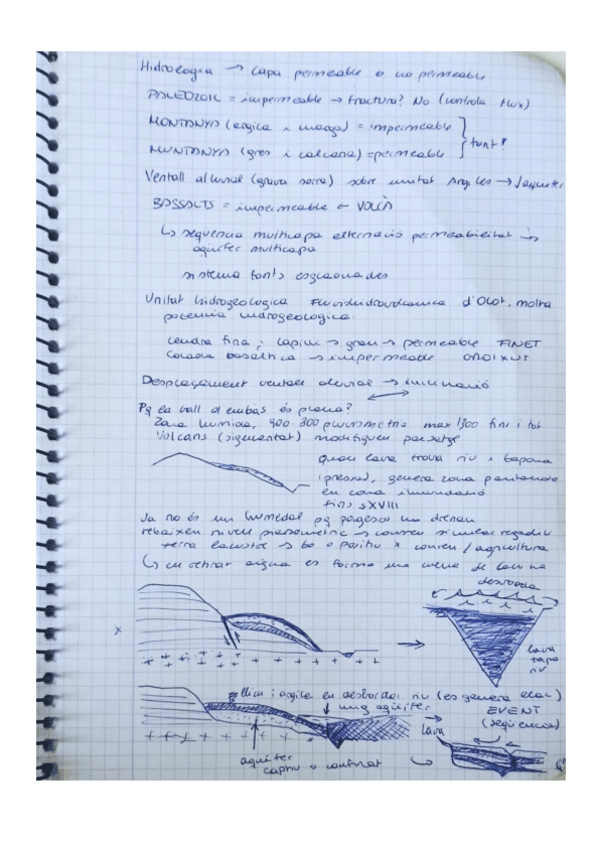 Hidrologia → capa permeable o no permeable
PALEOZOIC = impermeable → fractura? No (controla flux)
MONTANYA (argila i marga) = impermeable
MUNTANYA (gres i calcaria) = permeable } font!
Ventall alluvial (grava sorra) sobre unitat Angles → 1 aqüífer
BASSALTS = impermeable ← VOLCÀ
↳ seqüencia multicapa alternació permeabilitat →
aqüifer multicapa
sistema fonts esglaonades
Unitat hidrogeologica Fluviohidrovolcanica d'Olot, molta
potencia hidrogeologica.
cendra fina i lapilli → grans → permeable FINET
Colada basaltica → impermeable
Desplaçament ventall alluvial → inundació
Pq la vall d'embas és plana?
Zona humida, 900-800 pluviometria max 1300 fins i tot
Volcans (sigmentat) modifiquen paisatge
Quan lava troba riu i tapona
(pressa), genera zona pantanosa
en cara inundació
fins sXVIII
Ja no és un humedal pq pagesos van drenar
rebaixen nivell piezometric → conreu similar regadiu
terra lacustre → bo o positiu x conreu / agricultura
↳ en retirar aigua es forma una mena de lacuna
desborda
x
→
lava
tapa
riu
llim i argila en desbordar riu (es genera estac)
un aqüifer
EVENT
(seqüencia)
lava
aqüifer
captiu o confinat